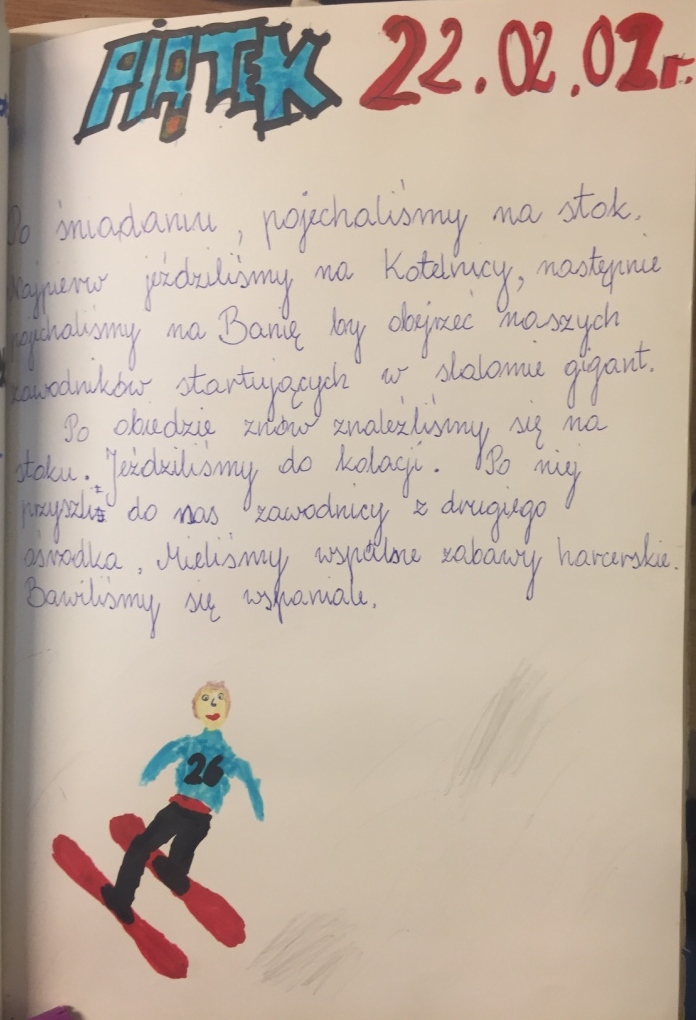 PIĄTEK 22.02.02r.
Po śniadaniu, pojechaliśmy na stok.
Najpierw jeździliśmy na Kotelnicy, następnie
pojechaliśmy na Banię by obejrzeć naszych
zawodników startujących w slalomie gigant.
Po obiedzie znów znaleźliśmy się na
stoku. Jeździliśmy do kolacji. Po niej
przyszli do nas zawodnicy z drugiego
ośrodka. Mieliśmy wspólne zabawy harcerskie.
Bawiliśmy się wspaniale.
26